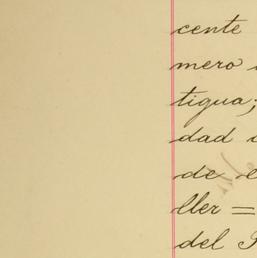 cente
mero
tigua;
dad
de
ller =
del